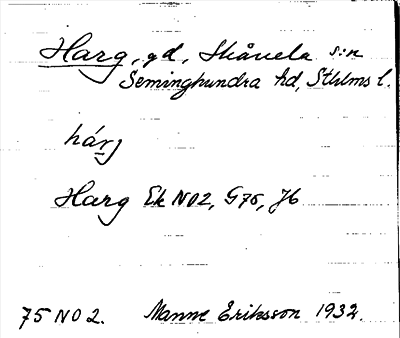 Harg, gd, Skånela s:n
Seminghundra hd, Sthlms l.
hárj
Harg Ek N02, G75, J6
75 N0 2. Manne Eriksson 1932.